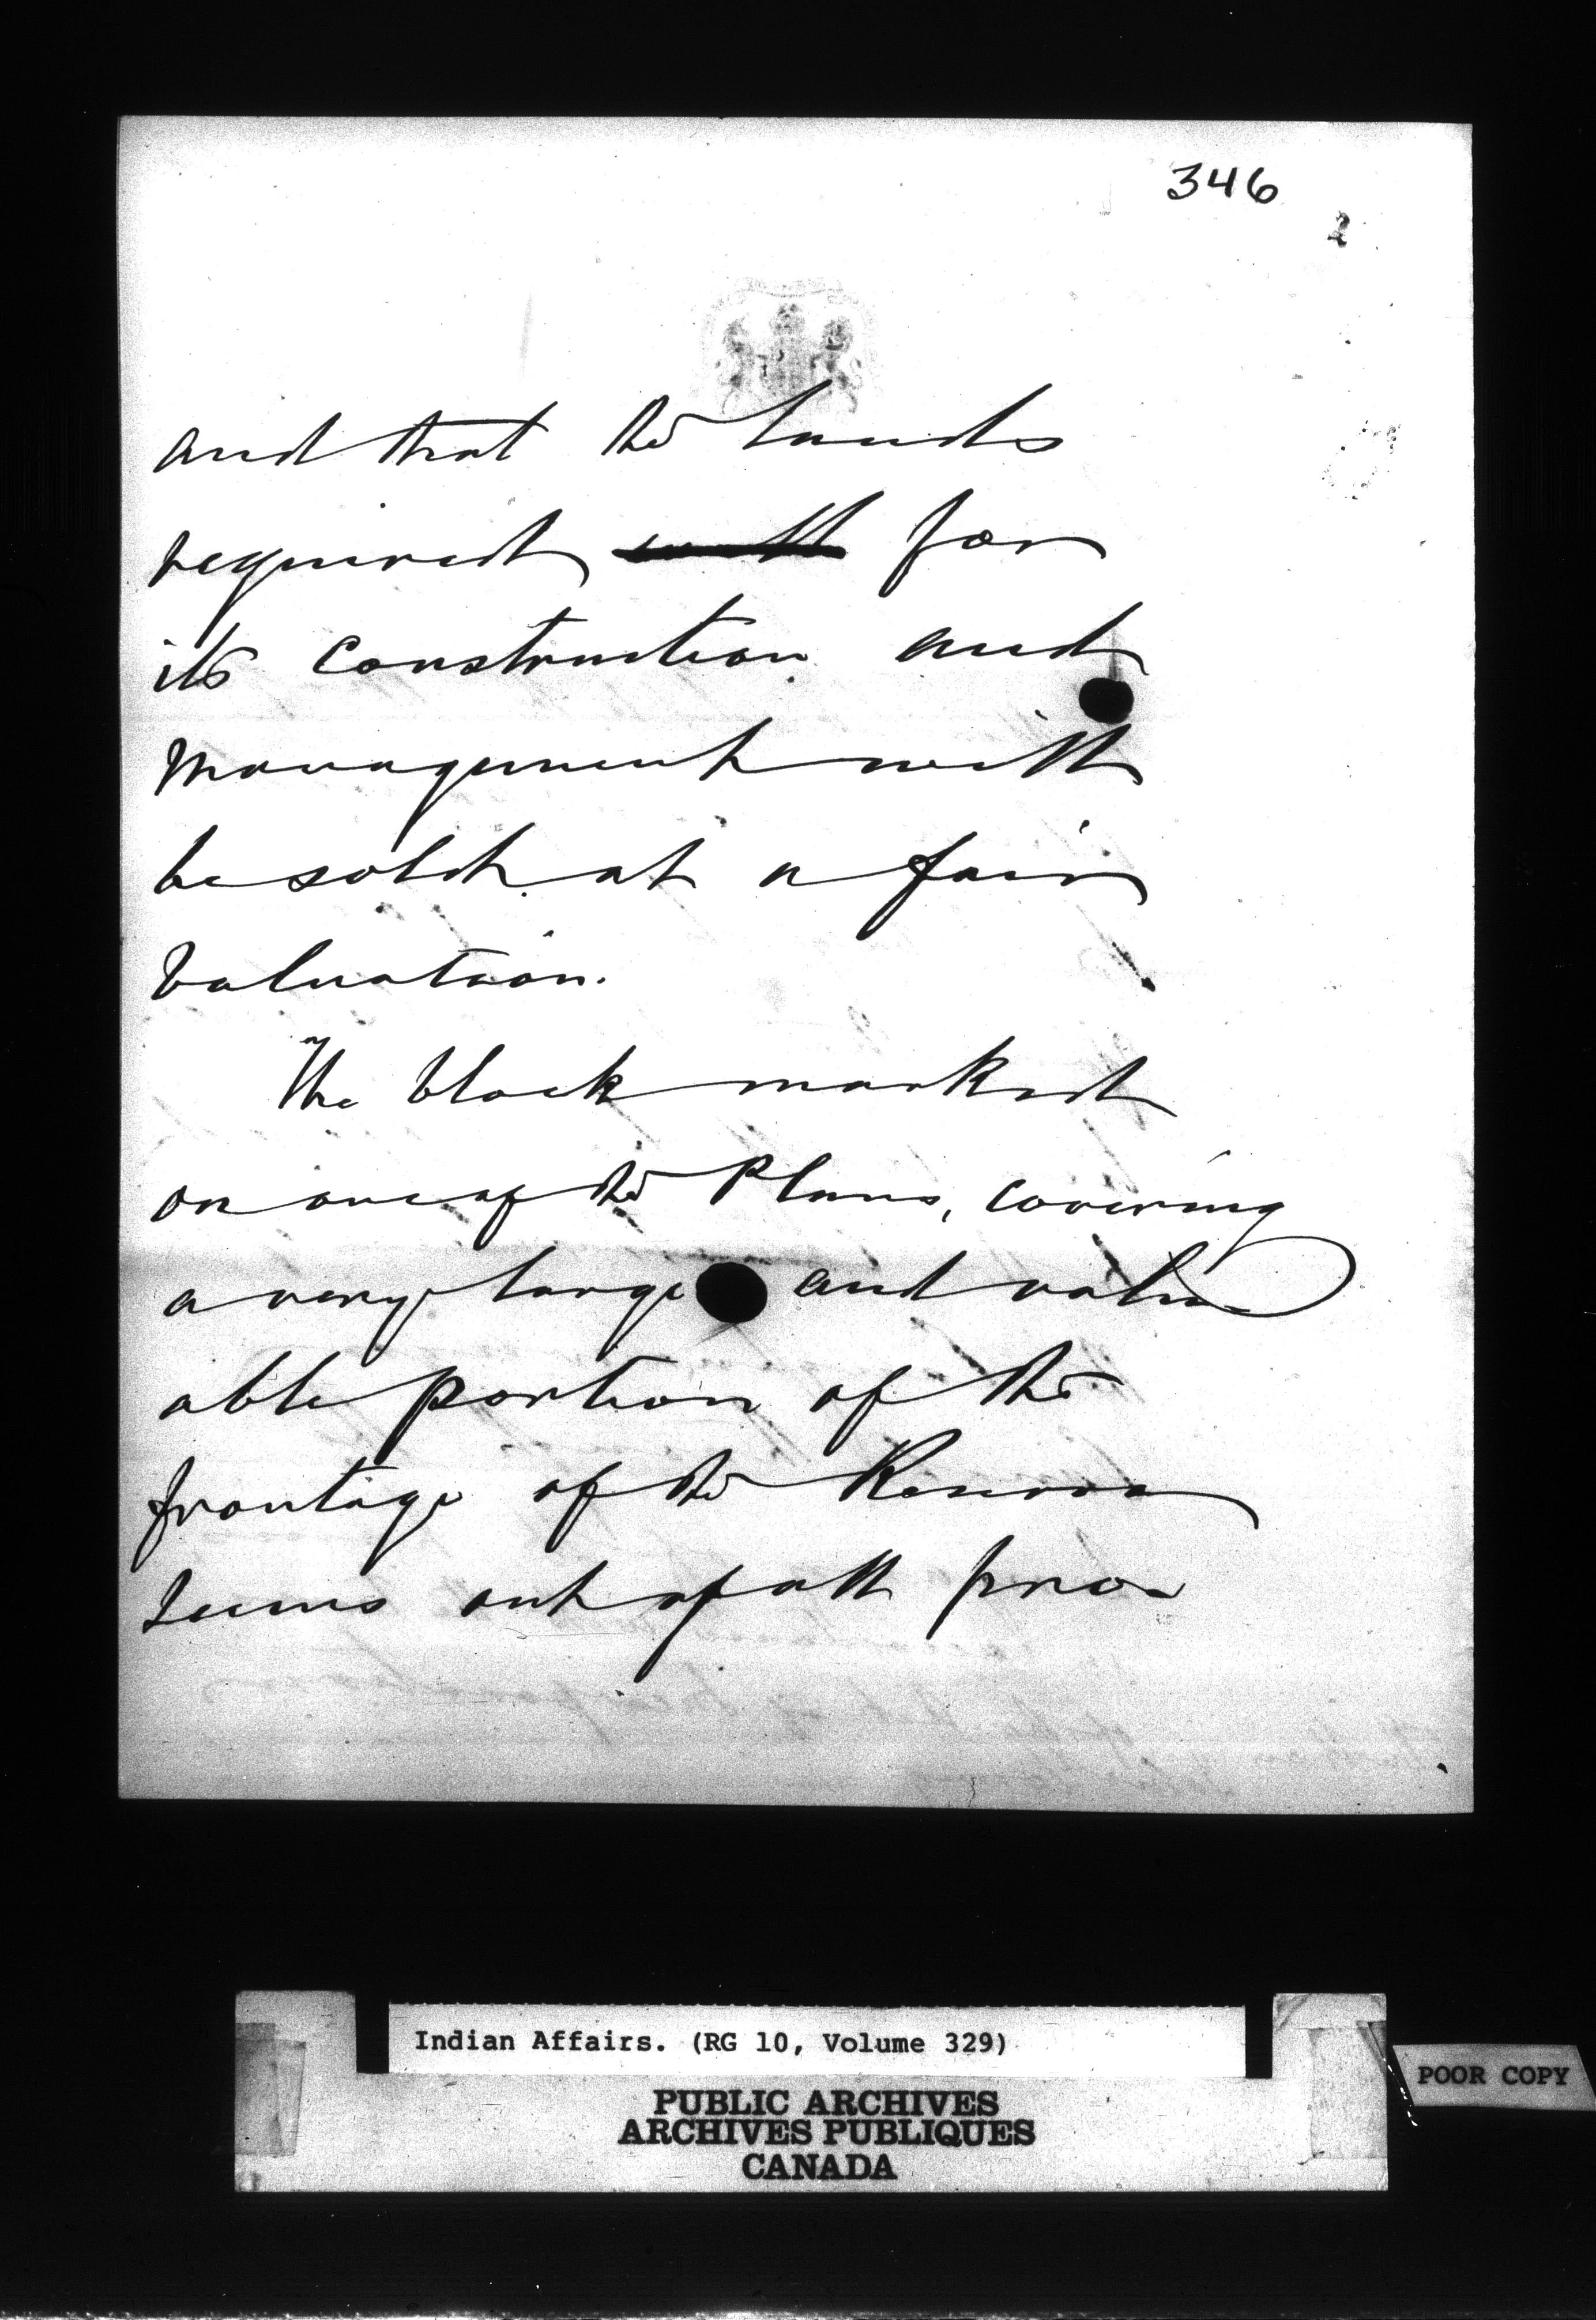 346
2
and that the lands
required will for
its construction and
management will
be sold at a fair
valuation.
The block marked
on one of the Plans, covering
a very large and valu
able portion of the
frontage of the Reserve
seems out of all pro
Indian Affairs. (RG 10, Volume 329)
PUBLIC ARCHIVES
ARCHIVES PUBLIQUES
CANADA
POOR COPY